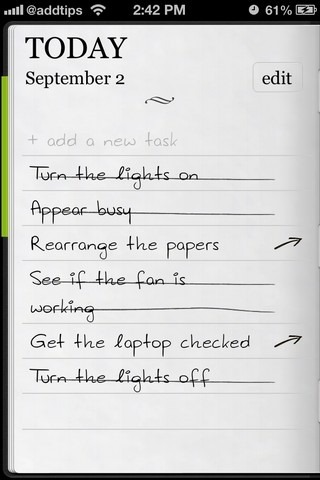 @addtips 2:42 PM 61%
TODAY
September 2
edit
+ add a new task
Turn the lights on
Appear busy
Rearrange the papers
See if the fan is
working
Get the laptop checked
Turn the lights off